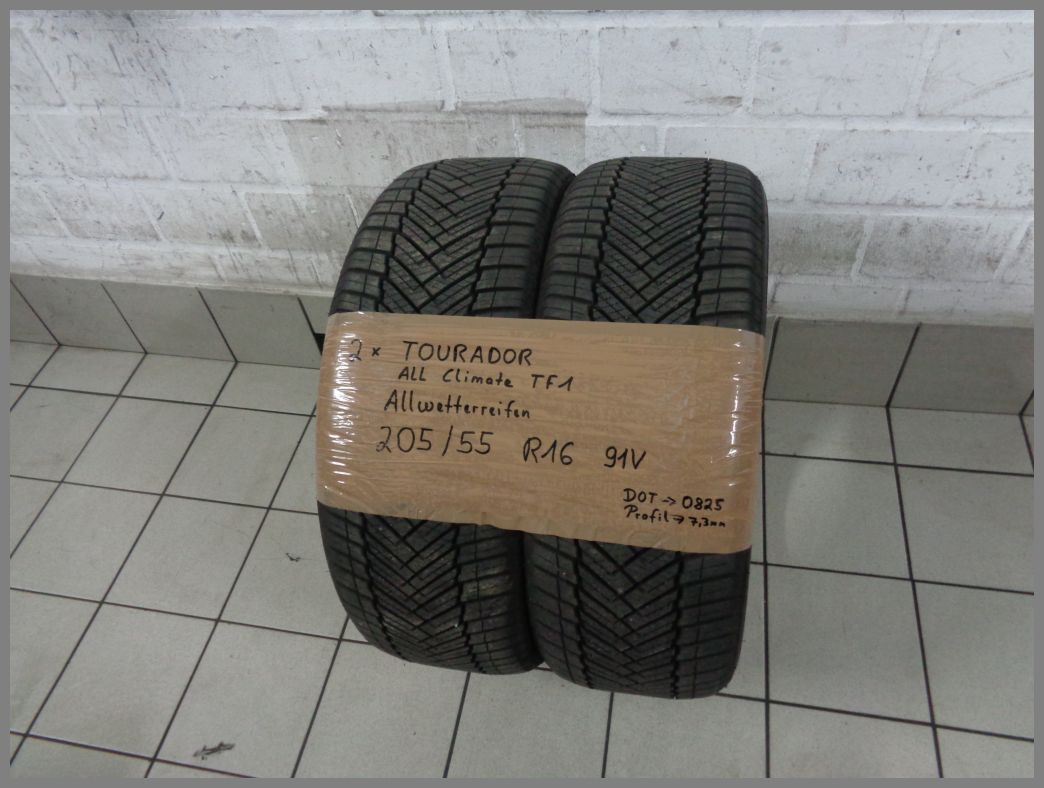 2x TOURADOR
ALL Climate TF1
Allwetterreifen
205/55 R16 91V
DOT → 0825
Profil → 7,3mm